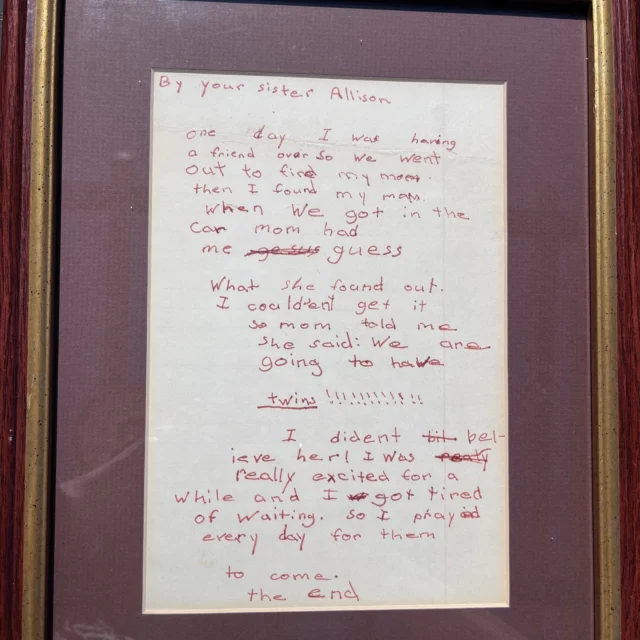 By your sister Allison
one day I was having
a friend over so we went
out to find my mom.
then I found my mom.
when We got in the
car mom had
me gesus guess
What she found out.
I couldent get it
so mom told me
she said: We are
going to have
twins !!!!!!!!!!!
I dident bel-
ieve her! I was realy
really excited for a
while and I got tired
of waiting. so I prayed
every day for them
to come.
the end